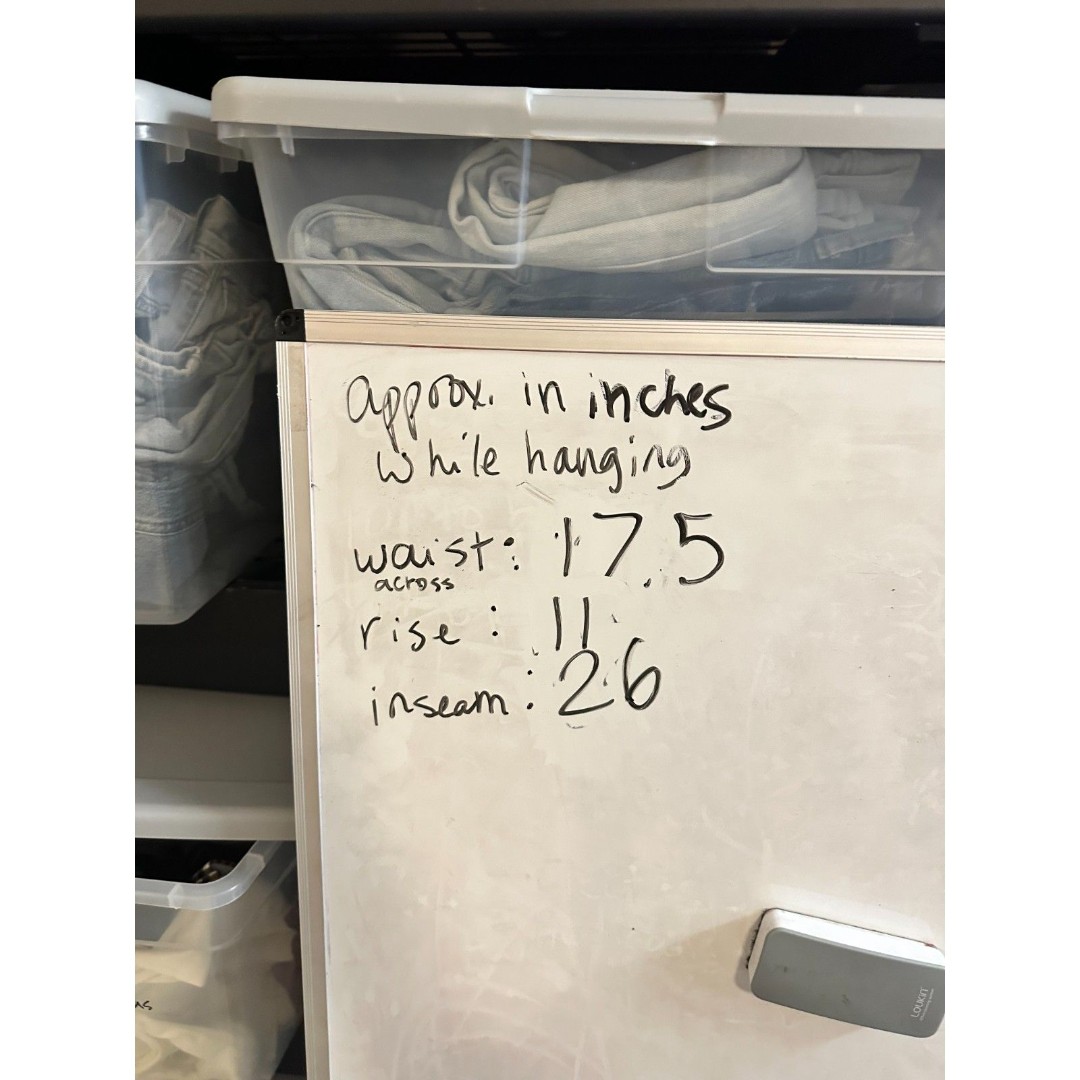 approx. in inches
while hanging
waist: 17.5
across
rise: 11
inseam: 26
LOUKIN